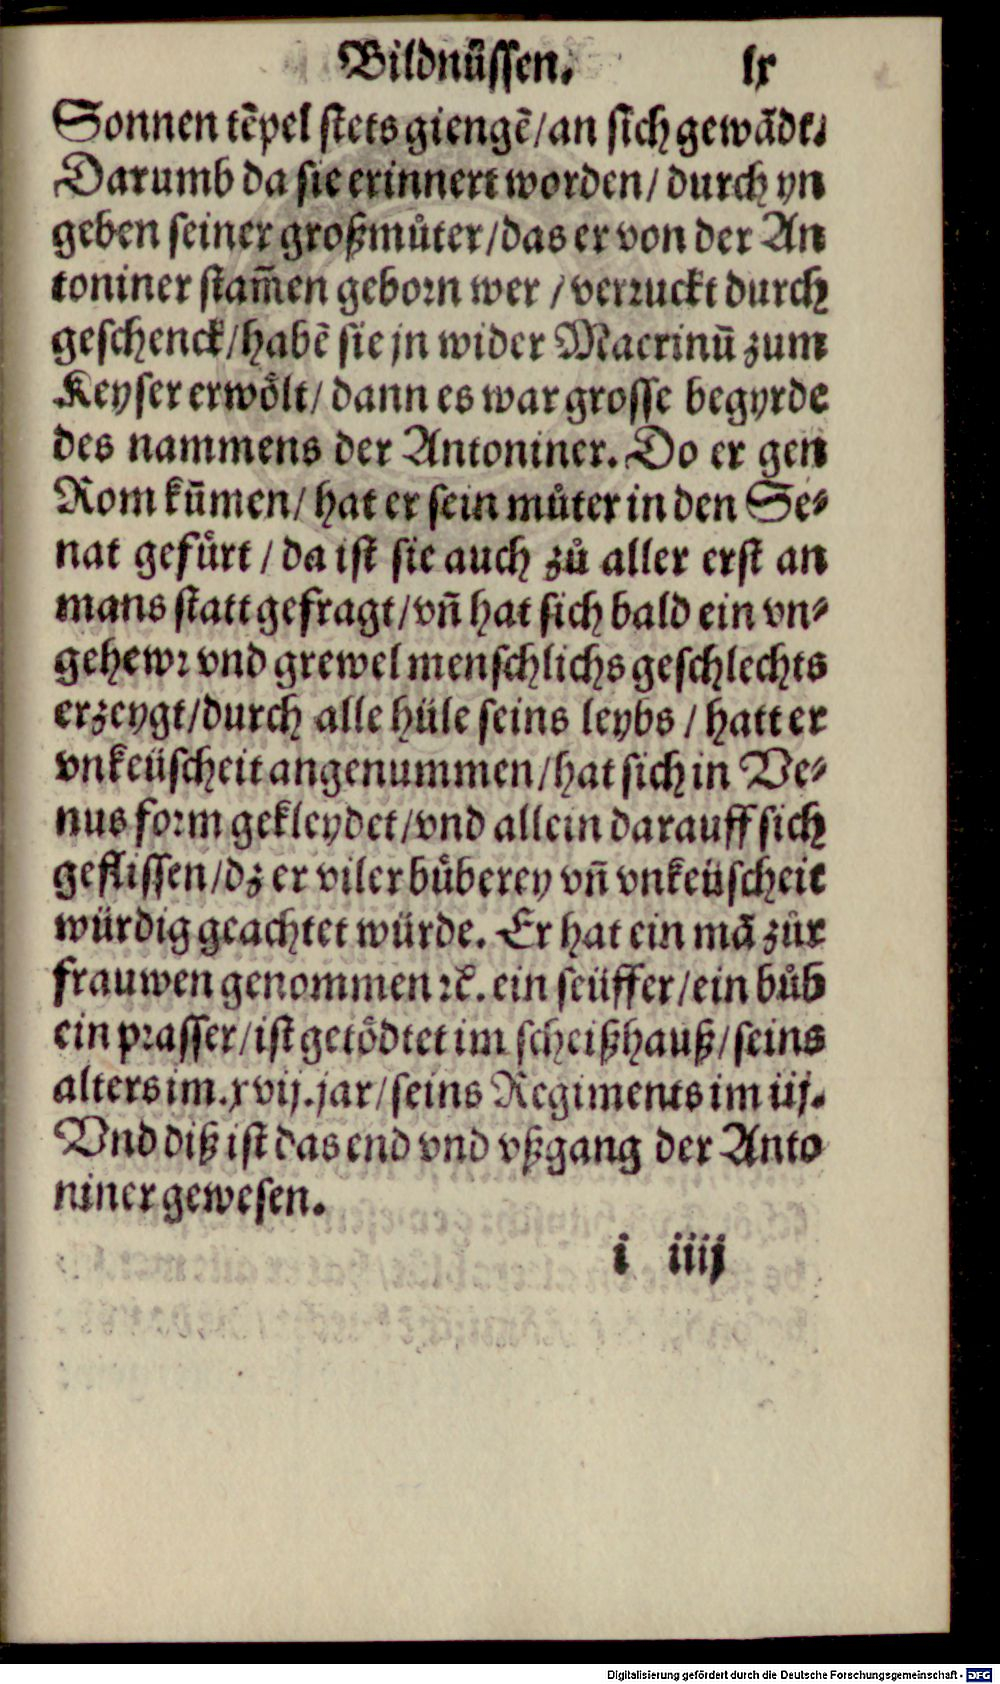 Bildnüssen. lx
Sonnen tẽpel stets giengẽ/an sich gewãdt.
Darumb da sie erinnert worden/ durch yn
geben seiner großmůter/das er von der An
toniner stam̃en geborn wer / verruckt durch
geschenck/habẽ sie jn wider Macrinũ zum
Keyser erwölt/ dann es war grosse begyrde
des nammens der Antoniner. Do er gen
Rom kũmen/ hat er sein můter in den Se⸗
nat gefürt / da ist sie auch zů aller erst an
mans statt gefragt/vñ hat sich bald ein vn⸗
gehewr vnd grewel menschlichs geschlechts
erzeygt/durch alle hüle seins leybs / hatt er
vnkeüscheit angenummen/hat sich in Ve⸗
nus form gekleydet/vnd allein darauff sich
geflissen/dz er viler bůberey vñ vnkeüscheit
würdig geachtet würde. Er hat ein mã zůr
frauwen genommen ⁊c. ein seüffer/ein bůb
ein prasser/ist getödtet im scheißhauß/seins
alters im.xvij.jar/seins Regiments im iij.
Vnd diß ist das end vnd vßgang der Anto
niner gewesen.
i iiij
Digitalisierung gefördert durch die Deutsche Forschungsgemeinschaft - DFG